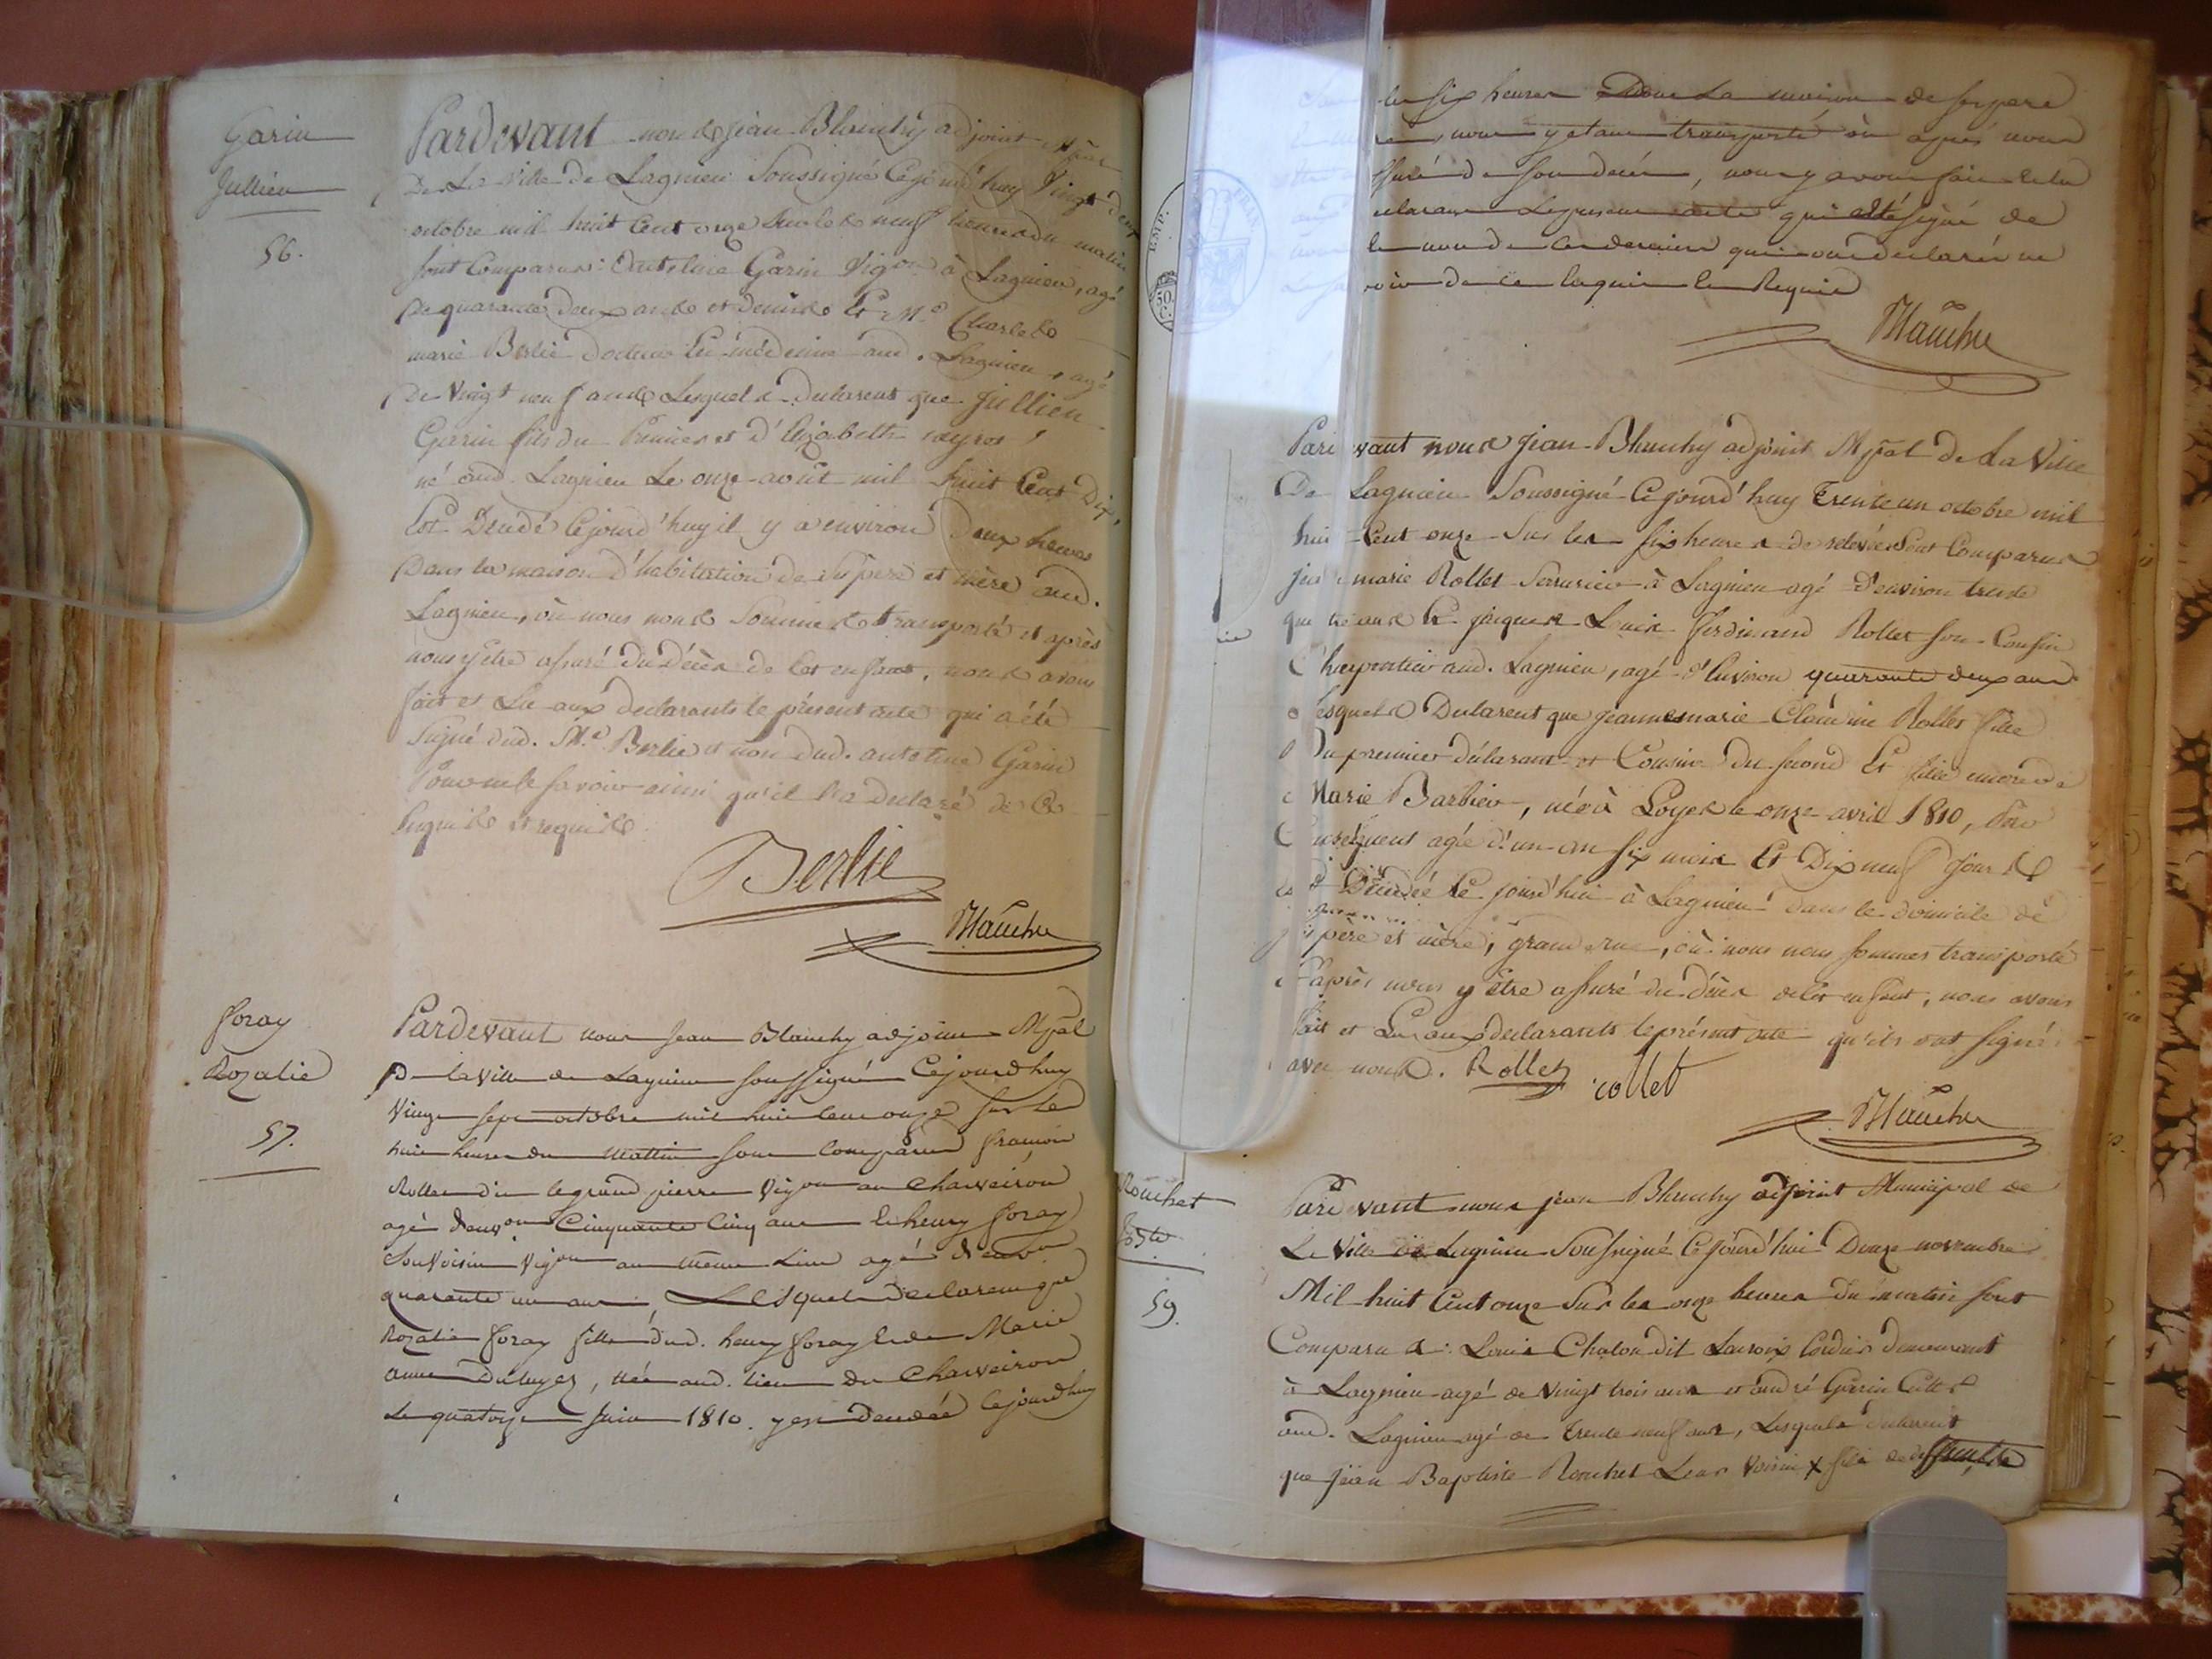 Garin
Jullien
56.
Pardevant nous Jean Blanchy adjoint Mpal
De La Ville de Lagnieu Soussigné Cejourd'huy Vingt deux
octobre mil huit Cent onze Sur les neuf heures du matin
sont Comparus: Garin Vigon à Lagnieu, agé
De quarante deux ans et demi Et Mr Charles
marie Berlie Docteur En médecine aud. Lagnieu, agé
De Vingt neuf ans Lesquels Declarent que Jullien
Garin fils du Premier et d'Elizabeth
né aud. Lagnieu Le onze août mil huit Cent Dix,
Est Decedé Cejourd'huy il y a environ Deux heures
Dans la maison d'habitation de Ses père et mère aud.
Lagnieu, où nous nous Sommes transporté et après
nous y être assuré Du Décès de Cet enfant, nous avons
fait et Lu aux declarants le présent acte qui a été
Signé dud. Mr Berlie et non dud. Garin
Pour ne le savoir ainsi qu'il l'a Declaré de Ce
Enquis et requis
Berlie
Blanchy
foray
Rozalie
57.
Pardevant nous Jean Blanchy adjoint Mpal
De la Ville de Lagnieu soussigné Cejourd'huy
Vingt sept octobre mil huit cent onze sur les
huit heures du Mattin sont Comparus francois
Rollet dit legrand pierre Vigon au Charveiron
agé d'envon Cinquante Cinq ans & henry foray
Son Voisin Vigon au même Lieu agé d'envon
quarante un ans, Lesquels declarent que
Rozalie foray fille dud. henry foray & de Marie
anne, née aud. lieu du Charveiron
Le quatorze Juin 1810. y est decedée Cejourd'huy
les six heures Dans La maison de son pere
nous y etant transporté où apres nous
ssuré de son décés, nous y avons fait & lu
eclarans Le present acte qui a été signé de
nous & non de ces derniers qui nous ont declaré ne
voir de ce Enquis & Requis
Blanchy
Pardevant nous Jean Blanchy adjoint Mpal De La Ville
De Lagnieu Soussigné Cejourd'huy Trente un octobre mil
huit Cent onze Sur les six heures de relevée Sont Comparus
Jean marie Rollet Serrurier à Lagnieu agé d'environ trente
quatre ans Et Jacques Louis ferdinand Rollet son Cousin
Charpentier aud. Lagnieu, agé d'Environ quarante deux ans
Lesquels Declarent que Jeanne marie Claudine Rollet fille
Du premier déclarant et Cousine Du second Et fille encore de
Marie Barbier, née à Loyes le onze avril 1810, Par
Conséquent agée d'un an six mois Et Dix neuf Jours
est Décédée Ce jourd'hui à Lagnieu dans le domicile de
ses père et mère, grand rue, où nous nous sommes transporté
et après nous y être assuré du Décès de Cet enfant, nous avons
fait et Lu aux declarants le présent acte qu'ils ont signé
avec nous. Rollet collet
Blanchy
Rouchet
J. Bste
59.
Pardevant nous Jean Blanchy adjoint Municipal de
La Ville de Lagnieu Soussigné Ce jourd'hui Douze novembre
Mil huit Cent onze Sur les onze heures du matin sont
Comparus: Louis Chalon dit Cordier demeurant
à Lagnieu agé de Vingt trois ans et andré Garin Cultr
aud. Lagnieu agé de Trente neuf ans, Lesquels declarent
que Jean Baptiste Rouchet Leur Voisin x fils de